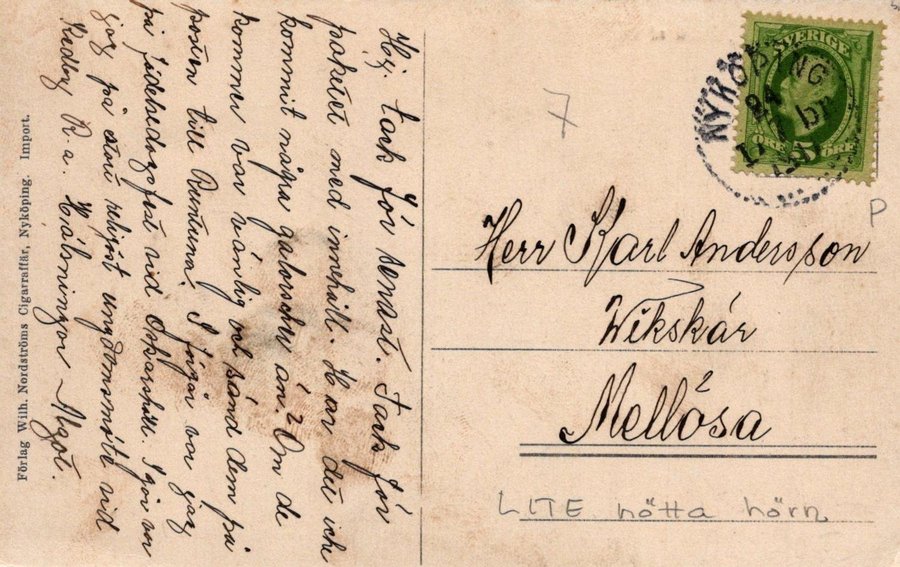 Hej. tack för senast. Tack för
paketet med innehåll. Har du icke
kommit några galoscher än? Om de
kommer var vänlig och sänd dem på
posten till Runtuna. I förgår var jag
på födelsedagsfest vid I går var
jag på religiöst ungdomsmöte vid
R.a. Hälsningar Algot.
Förlag Wilh. Nordströms Cigarraffär, Nyköping. Import.
NYKÖPING
SVERIGE
5 ÖRE
7
P
Herr Karl Andersson
Wikskär
Mellösa
LITE nötta hörn